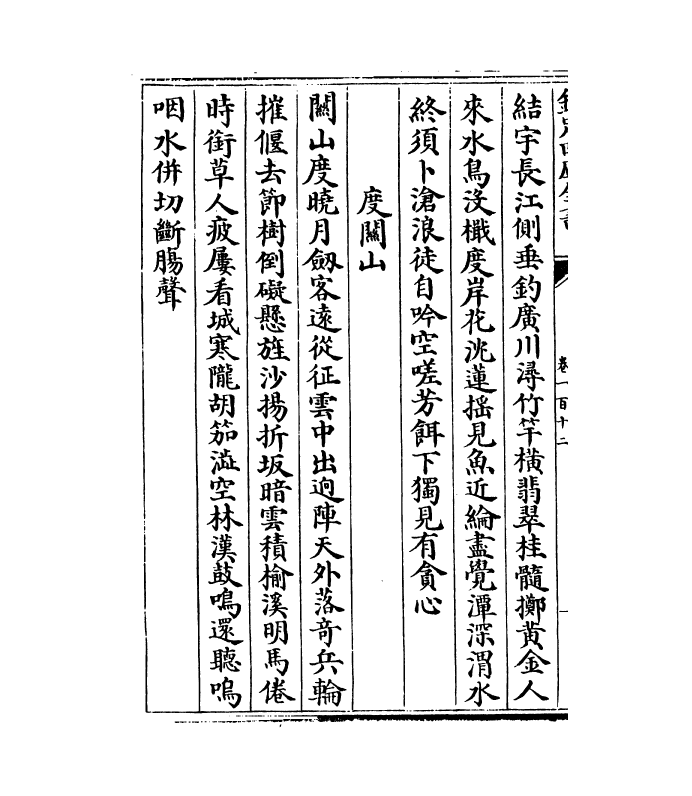 欽定四庫全書
卷一百十二
結宇長江側垂釣廣川潯竹竿橫翡翠桂髓擲黃金人
來水鳥沒檝度岸花沈蓮摇見魚近綸盡覺潭深渭水
終須卜滄浪徒自吟空嗟芳餌下獨見有貪心
度關山
關山度曉月劔客遠從征雲中出迥陣天外落竒兵輪
摧偃去節樹倒礙懸旌沙揚折坂暗雲積榆溪明馬倦
時銜草人疲屢看城寒隴胡笳澁空林漢鼓鳴還聽嗚
咽水併切斷腸聲